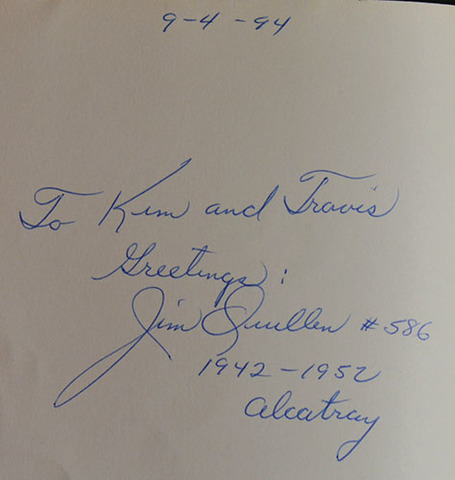 9-4-94
To Kim and Travis
Greetings:
Jim Quillen #586
1942-1952
Alcatraz